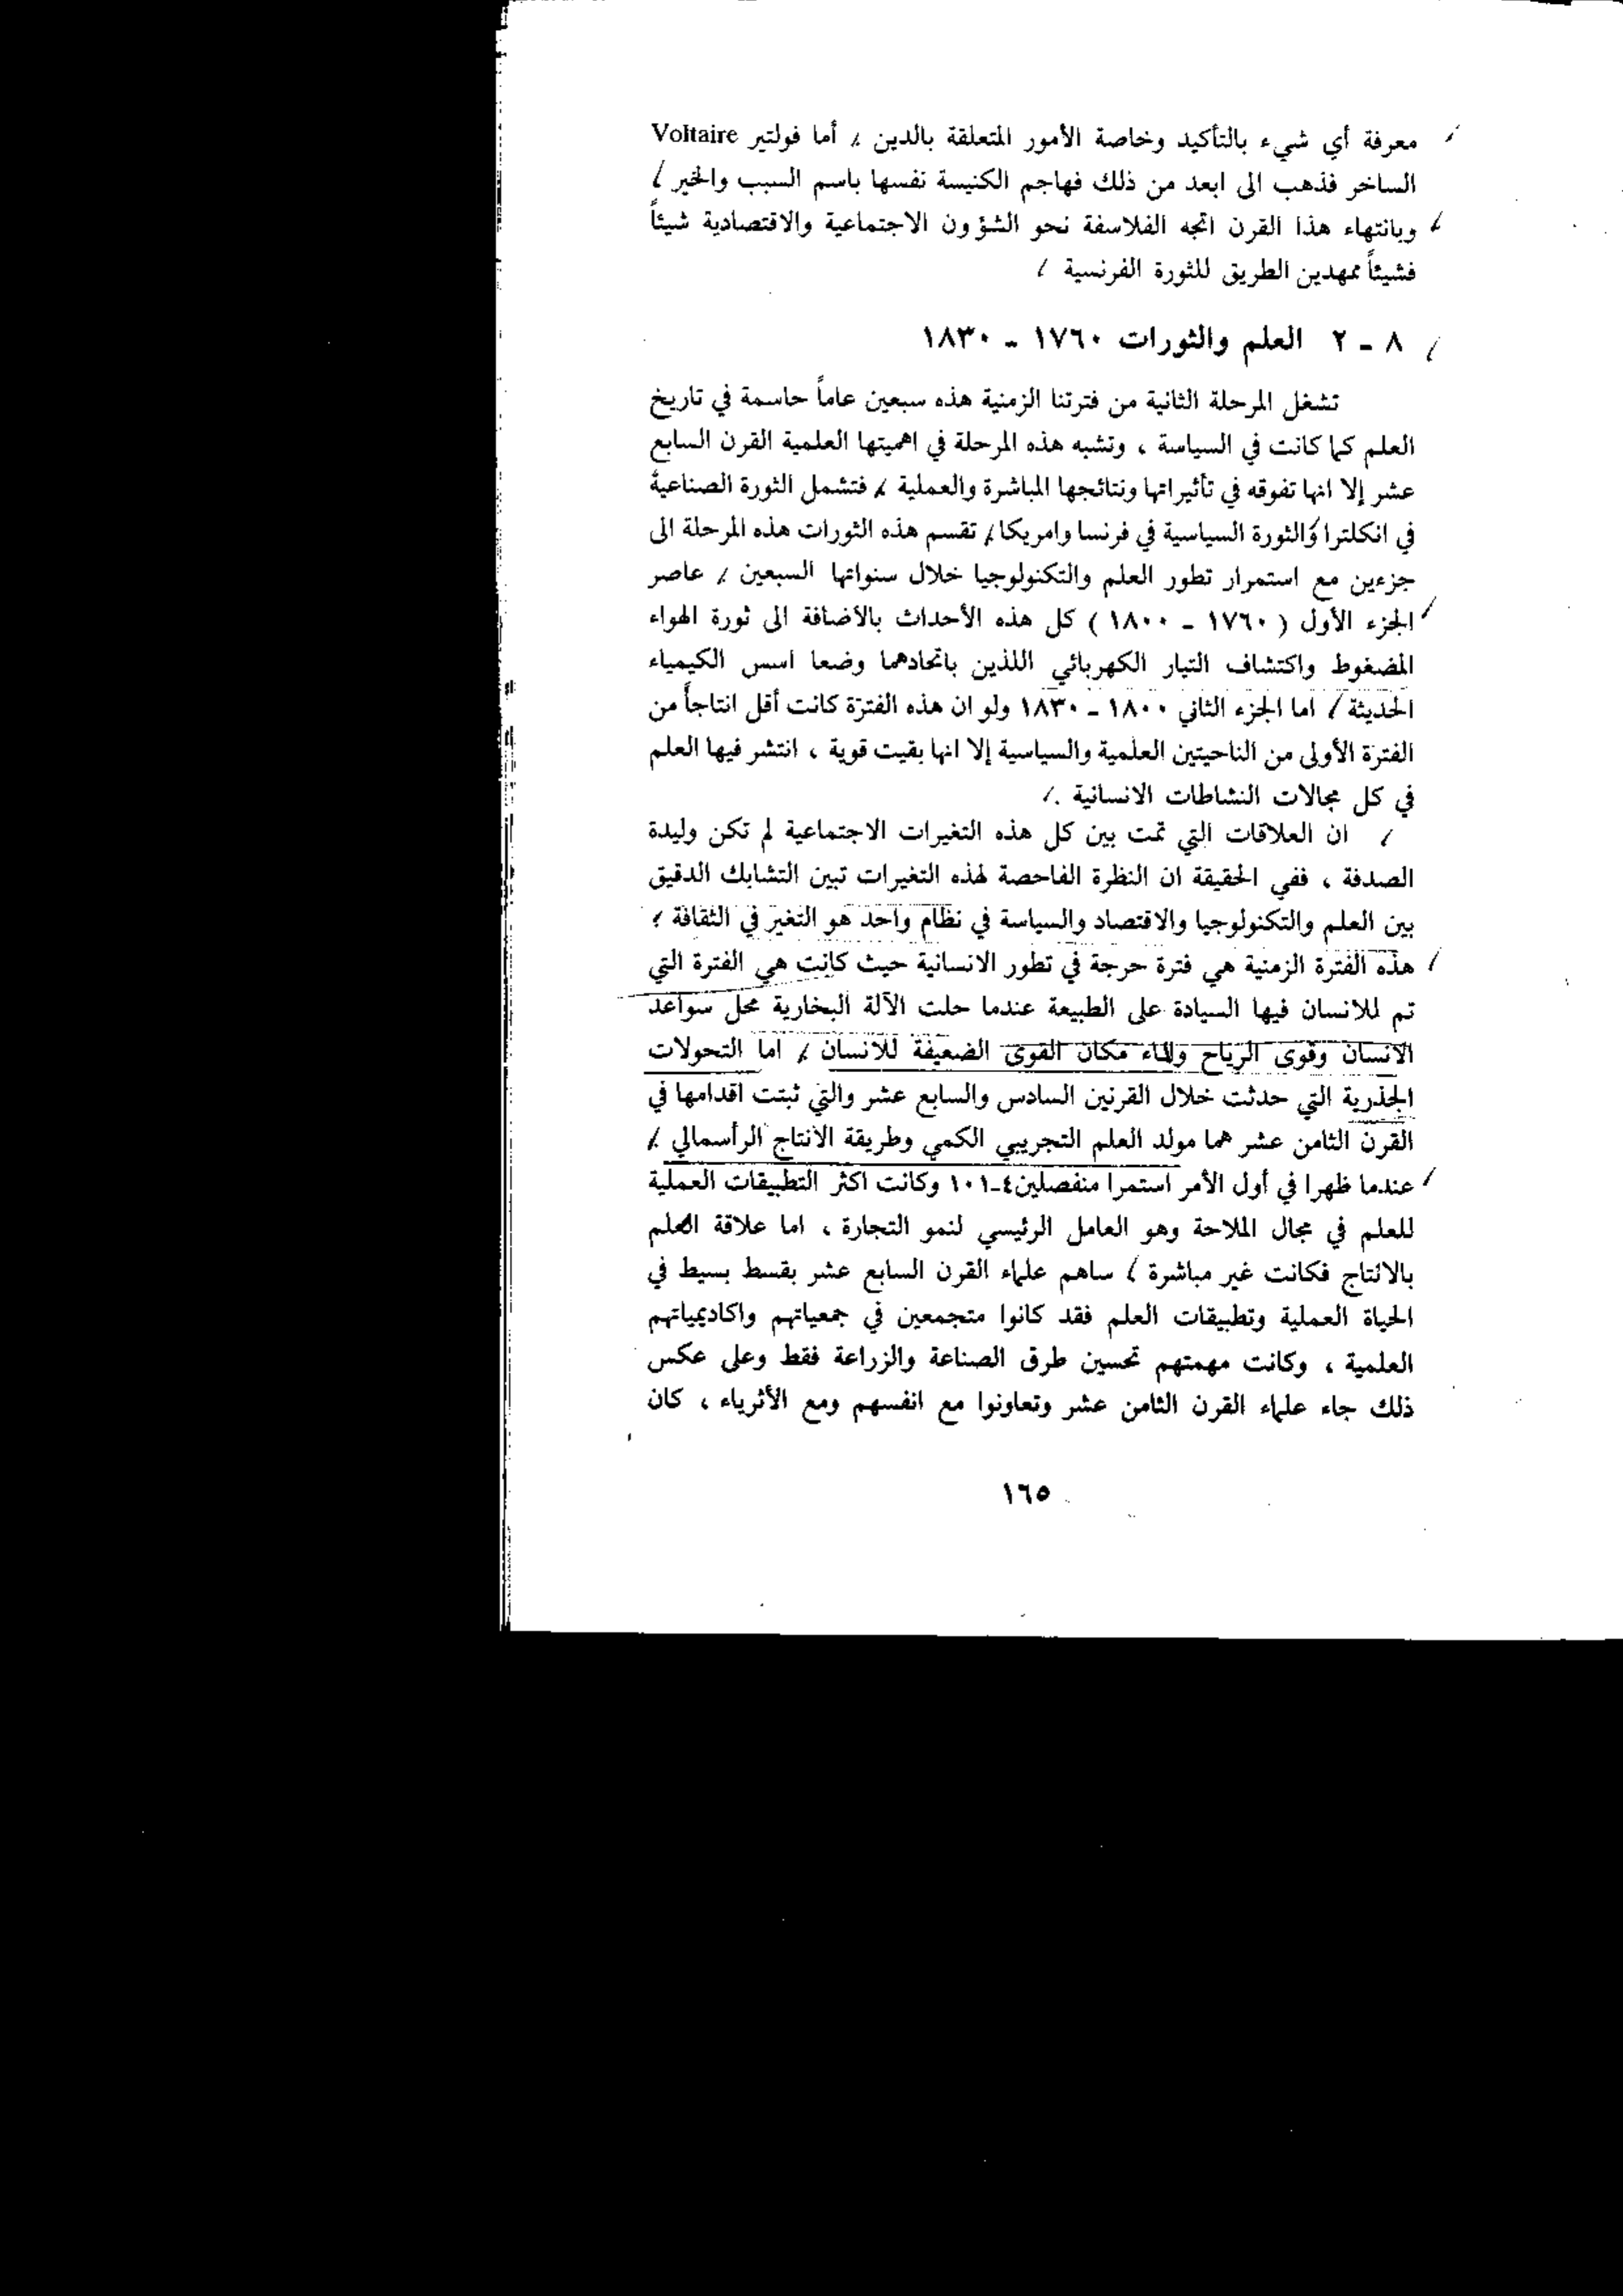 معرفة أي شيء بالتأكيد وخاصة الأمور المتعلقة بالدين / أما فولتير Voltaire
الساخر فذهب الى ابعد من ذلك فهاجم الكنيسة نفسها باسم السبب والخير /
وبانتهاء هذا القرن اتجه الفلاسفة نحو الشؤون الاجتماعية والاقتصادية شيئاً
فشيئاً ممهدين الطريق للثورة الفرنسية /
٨ - ٢ العلم والثورات ١٧٦٠ - ١٨٣٠
تشغل المرحلة الثانية من فترتنا الزمنية هذه سبعين عاماً حاسمة في تاريخ
العلم كما كانت في السياسة ، وتشبه هذه المرحلة في اهميتها العلمية القرن السابع
عشر إلا انها تفوقه في تأثيراتها ونتائجها المباشرة والعملية / فتشمل الثورة الصناعية
في انكلترا والثورة السياسية في فرنسا وامريكا / تقسم هذه الثورات هذه المرحلة الى
جزءين مع استمرار تطور العلم والتكنولوجيا خلال سنواتها السبعين / عاصر
الجزء الأول ( ١٧٦٠ - ١٨٠٠ ) كل هذه الأحداث بالاضافة الى ثورة الهواء
المضغوط واكتشاف التيار الكهربائي اللذين باتحادهما وضعا اسس الكيمياء
الحديثة / اما الجزء الثاني ١٨٠٠ - ١٨٣٠ ولو ان هذه الفترة كانت أقل انتاجاً من
الفترة الأولى من الناحيتين العلمية والسياسية إلا انها بقيت قوية ، انتشر فيها العلم
في كل مجالات النشاطات الانسانية ./
/ ان العلاقات التي تمت بين كل هذه التغيرات الاجتماعية لم تكن وليدة
الصدفة ، ففي الحقيقة ان النظرة الفاحصة لهذه التغيرات تبين التشابك الدقيق
بين العلم والتكنولوجيا والاقتصاد والسياسة في نظام واحد هو التغير في الثقافة /
هذه الفترة الزمنية هي فترة حرجة في تطور الانسانية حيث كانت هي الفترة التي
تم للانسان فيها السيادة على الطبيعة عندما حلت الآلة البخارية محل سواعد
الانسان وقوى الرياح والماء مكان القوى الضعيفة للانسان / اما التحولات
الجذرية التي حدثت خلال القرنين السادس والسابع عشر والتي ثبتت اقدامها في
القرن الثامن عشر هما مولد العلم التجريبي الكمي وطريقة الانتاج الرأسمالي /
عندما ظهرا في أول الأمر استمرا منفصلين٤-١٠١ وكانت اكثر التطبيقات العملية
للعلم في مجال الملاحة وهو العامل الرئيسي لنمو التجارة ، اما علاقة العلم
بالانتاج فكانت غير مباشرة / ساهم علماء القرن السابع عشر بقسط بسيط في
الحياة العملية وتطبيقات العلم فقد كانوا متجمعين في جمعياتهم واكاديمياتهم
العلمية ، وكانت مهمتهم تحسين طرق الصناعة والزراعة فقط وعلى عكس
ذلك جاء علماء القرن الثامن عشر وتعاونوا مع انفسهم ومع الأثرياء ، كان
١٦٥